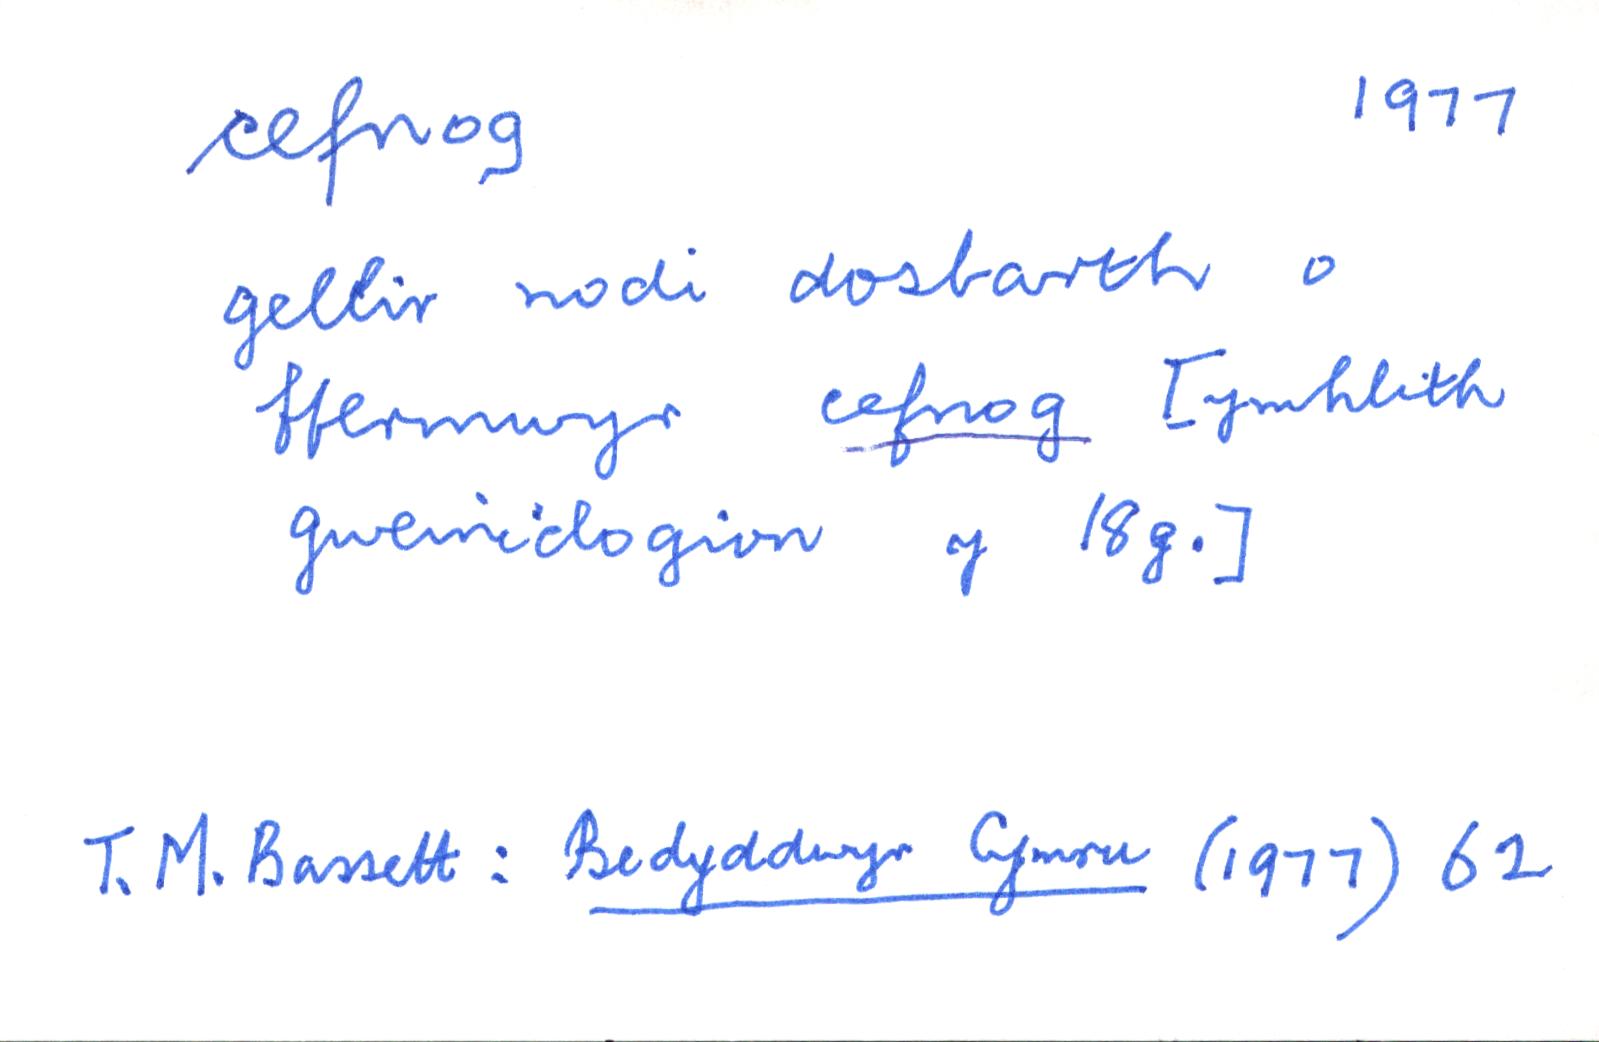 cefnog 1977
gellir nodi dosbarth o
ffermwyr cefnog [ymhlith
gweinidogion y 18g.]
T. M. Bassett : Bedyddwyr Cymru (1977) 62